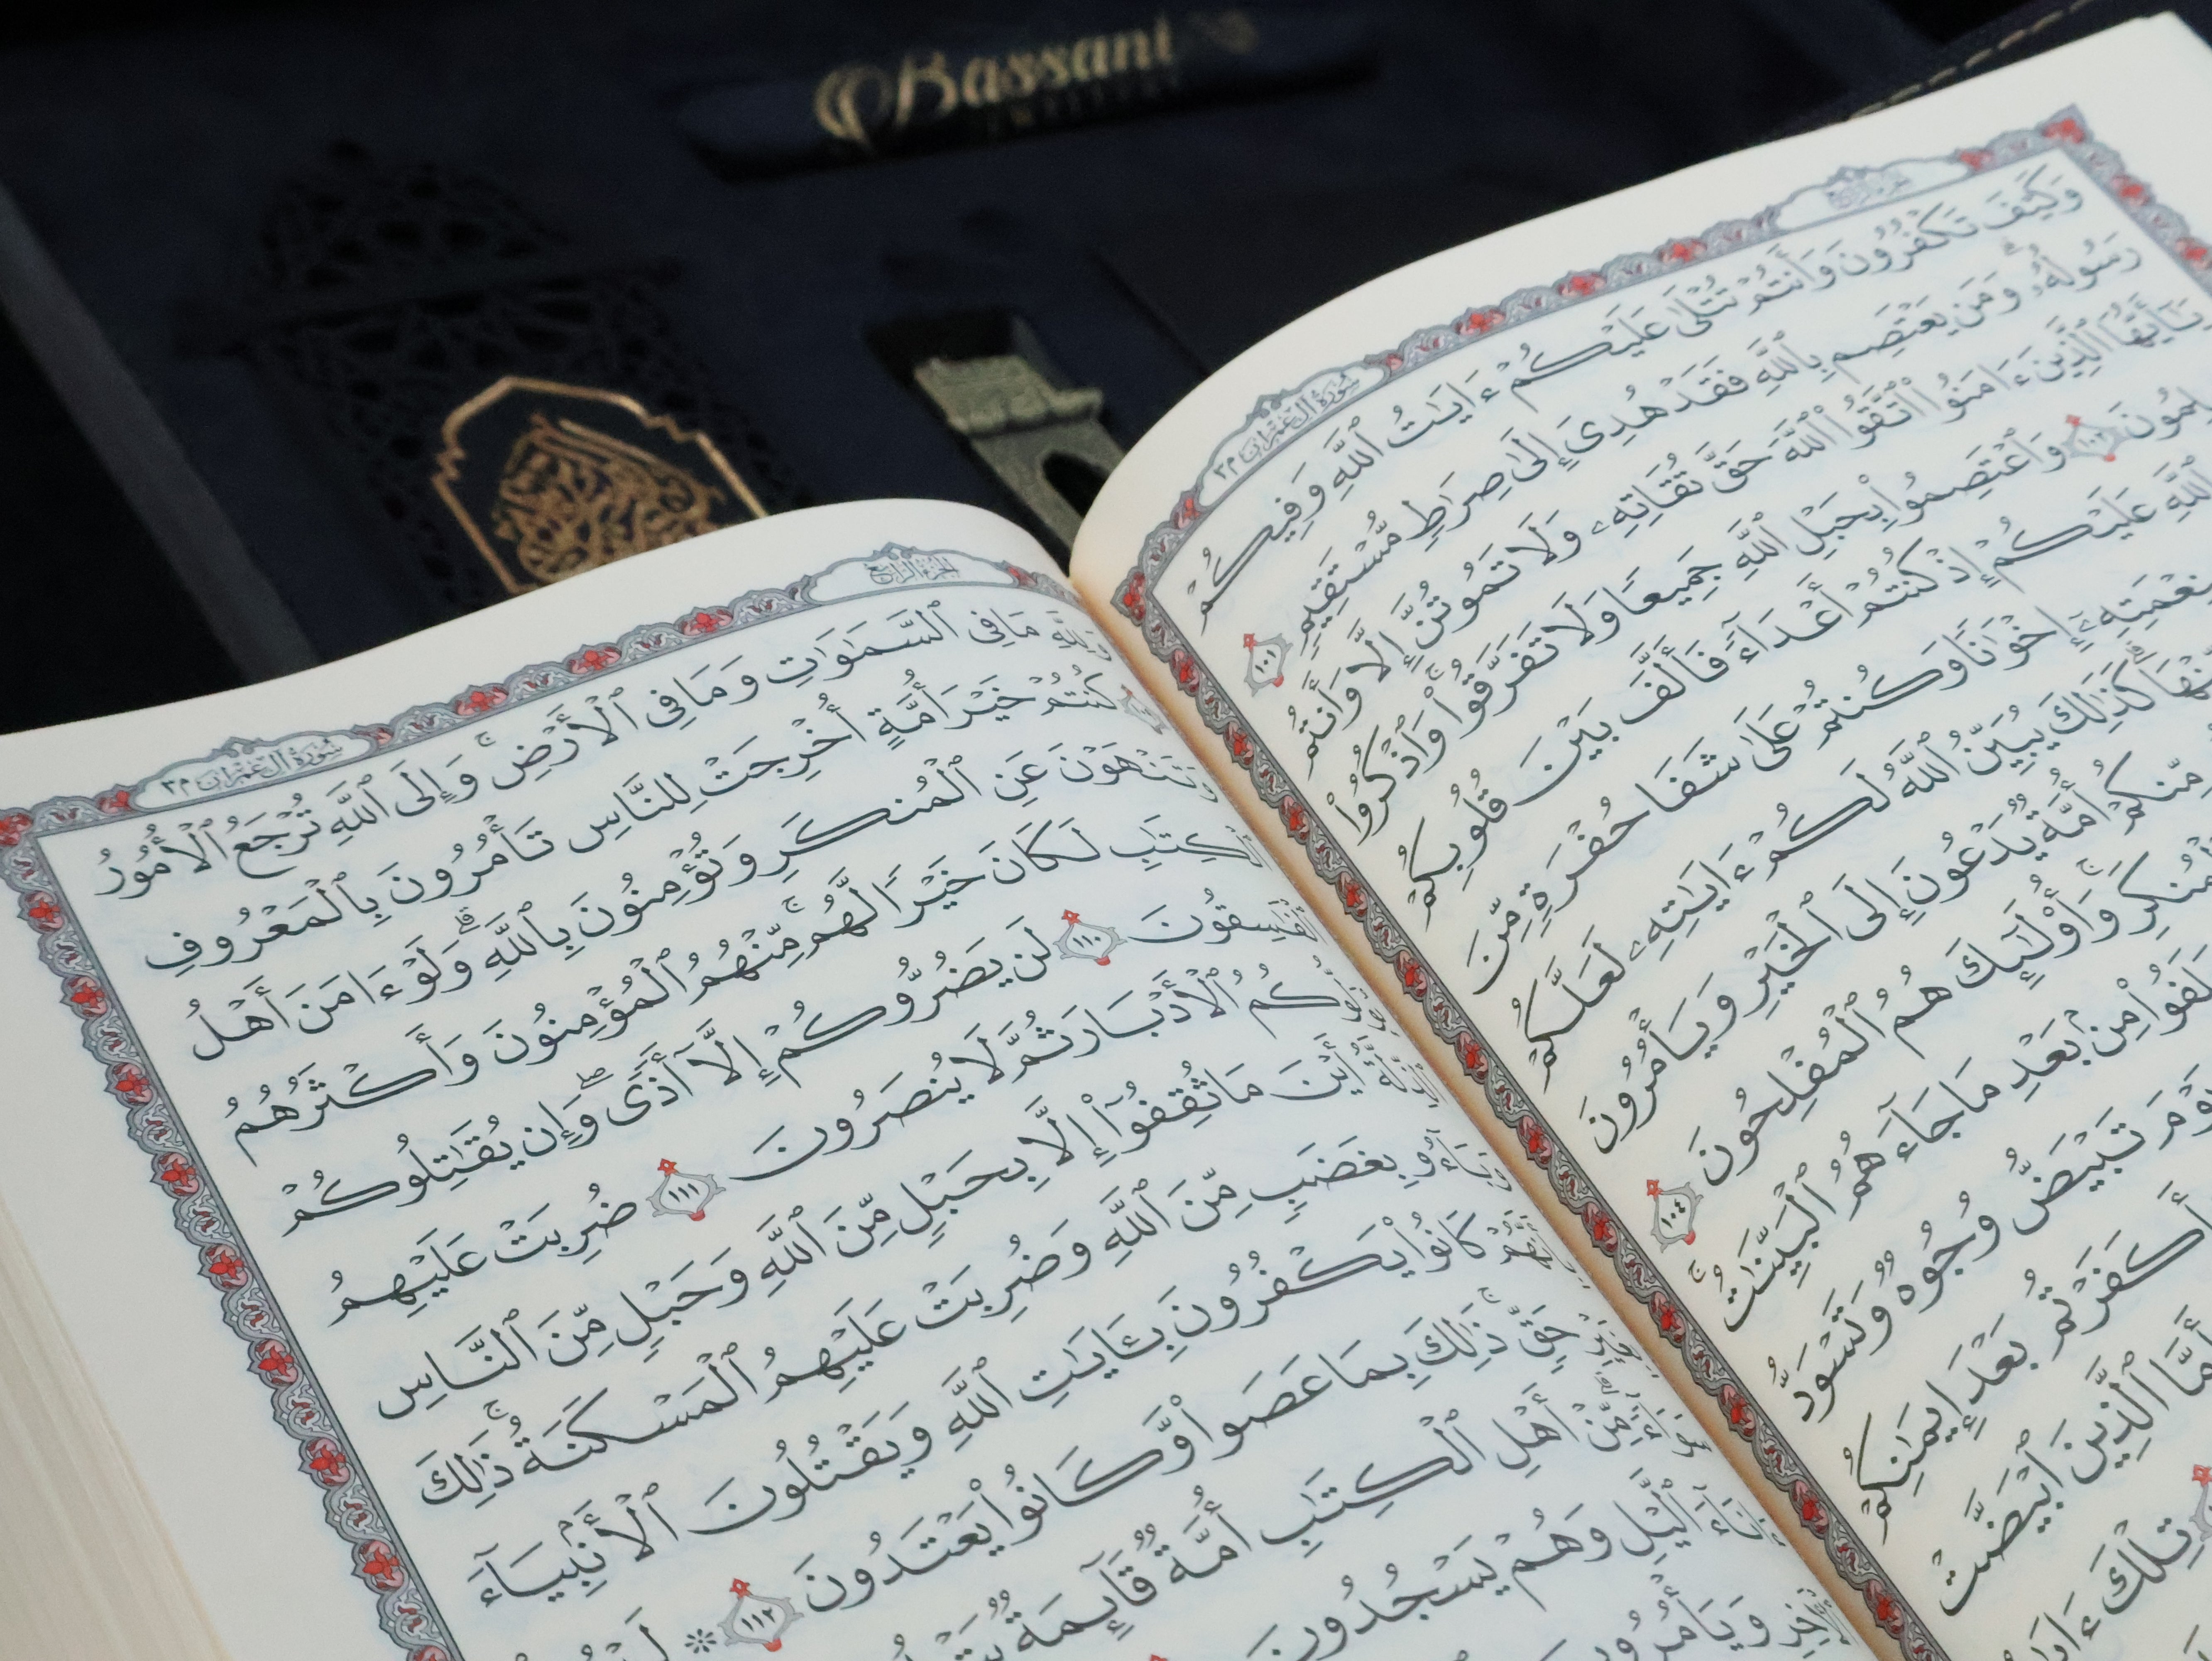 Bassant
الجزء الرابع
سورة آل عمران ٣م
وَكَيْفَ تَكْفُرُونَ وَأَنتُمْ تُتْلَىٰ عَلَيْكُمْ ءَايَٰتُ ٱللَّهِ وَفِيكُمْ
رَسُولُهُۥ ۗ وَمَن يَعْتَصِم بِٱللَّهِ فَقَدْ هُدِىَ إِلَىٰ صِرَٰطٍ مُّسْتَقِيمٍ ١٠١
يَٰٓأَيُّهَا ٱلَّذِينَ ءَامَنُوا۟ ٱتَّقُوا۟ ٱللَّهَ حَقَّ تُقَاتِهِۦ وَلَا تَمُوتُنَّ إِلَّا وَأَنتُم
١٠٢ وَٱعْتَصِمُوا۟ بِحَبْلِ ٱللَّهِ جَمِيعًا وَلَا تَفَرَّقُوا۟ ۚ وَٱذْكُرُوا۟
ٱللَّهِ عَلَيْكُمْ إِذْ كُنتُمْ أَعْدَآءً فَأَلَّفَ بَيْنَ قُلُوبِكُمْ
بِنِعْمَتِهِۦٓ إِخْوَٰنًا وَكُنتُمْ عَلَىٰ شَفَا حُفْرَةٍ مِّنَ
كَذَٰلِكَ يُبَيِّنُ ٱللَّهُ لَكُمْ ءَايَٰتِهِۦ لَعَلَّكُمْ
مِّنكُمْ أُمَّةٌ يَدْعُونَ إِلَى ٱلْخَيْرِ وَيَأْمُرُونَ
ۚ وَأُو۟لَٰٓئِكَ هُمُ ٱلْمُفْلِحُونَ ١٠٤
مِنۢ بَعْدِ مَا جَآءَهُمُ ٱلْبَيِّنَٰتُ ۚ
تَبْيَضُّ وُجُوهٌ وَتَسْوَدُّ
أَكَفَرْتُم بَعْدَ إِيمَٰنِكُمْ
ٱلَّذِينَ ٱبْيَضَّتْ
تِلْكَ
الجزء الرابع
سورة آل عمران ٣م
وَلِلَّهِ مَا فِى ٱلسَّمَٰوَٰتِ وَمَا فِى ٱلْأَرْضِ ۚ وَإِلَى ٱللَّهِ تُرْجَعُ ٱلْأُمُورُ
كُنتُمْ خَيْرَ أُمَّةٍ أُخْرِجَتْ لِلنَّاسِ تَأْمُرُونَ بِٱلْمَعْرُوفِ
وَتَنْهَوْنَ عَنِ ٱلْمُنكَرِ وَتُؤْمِنُونَ بِٱللَّهِ ۗ وَلَوْ ءَامَنَ أَهْلُ
ٱلْكِتَٰبِ لَكَانَ خَيْرًا لَّهُم ۚ مِّنْهُمُ ٱلْمُؤْمِنُونَ وَأَكْثَرُهُمُ
ٱلْفَٰسِقُونَ ١١٠ لَن يَضُرُّوكُمْ إِلَّآ أَذًى ۖ وَإِن يُقَٰتِلُوكُمْ
يُوَلُّوكُمُ ٱلْأَدْبَارَ ثُمَّ لَا يُنصَرُونَ ١١١ ضُرِبَتْ عَلَيْهِمُ
ٱلذِّلَّةُ أَيْنَ مَا ثُقِفُوٓا۟ إِلَّا بِحَبْلٍ مِّنَ ٱللَّهِ وَحَبْلٍ مِّنَ ٱلنَّاسِ
وَبَآءُو بِغَضَبٍ مِّنَ ٱللَّهِ وَضُرِبَتْ عَلَيْهِمُ ٱلْمَسْكَنَةُ ۚ ذَٰلِكَ
بِأَنَّهُمْ كَانُوا۟ يَكْفُرُونَ بِـَٔايَٰتِ ٱللَّهِ وَيَقْتُلُونَ ٱلْأَنۢبِيَآءَ
حَقٍّ ۚ ذَٰلِكَ بِمَا عَصَوا۟ وَّكَانُوا۟ يَعْتَدُونَ ١١٢ ۞
مِّنْ أَهْلِ ٱلْكِتَٰبِ أُمَّةٌ قَآئِمَةٌ
ٱلَّيْلِ وَهُمْ يَسْجُدُونَ